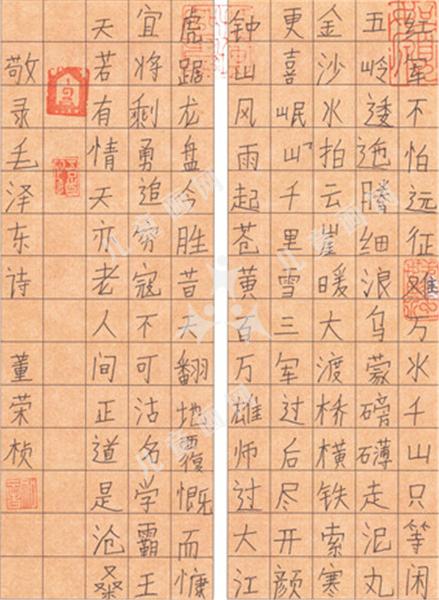 红军不怕远征难万水千山只等闲
五岭逶迤腾细浪乌蒙磅礴走泥丸
金沙水拍云崖暖大渡桥横铁索寒
更喜岷山千里雪三军过后尽开颜
钟山风雨起苍黄百万雄师过大江
虎踞龙盘今胜昔天翻地覆慨而慷
宜将剩勇追穷寇不可沽名学霸王
天若有情天亦老人间正道是沧桑
敬录毛泽东诗 董荣桢
儿童画网